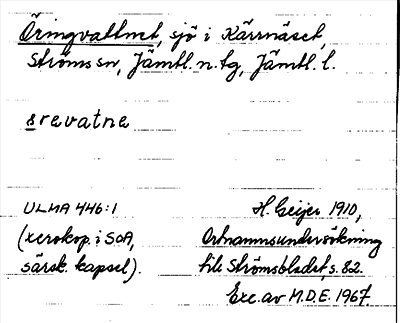 Öringvattnet, sjö i Kärrnäset,
Ströms sn, Jämtl. n. tg, Jämtl. l.
srevatne
ULMA 446:1
H. Geijer 1910,
(xerokop. i SOA,
Ortnamnsundersökning
särsk. kapsel).
till Strömsbladet, s. 82.
Exc. av M.D.E. 1967.